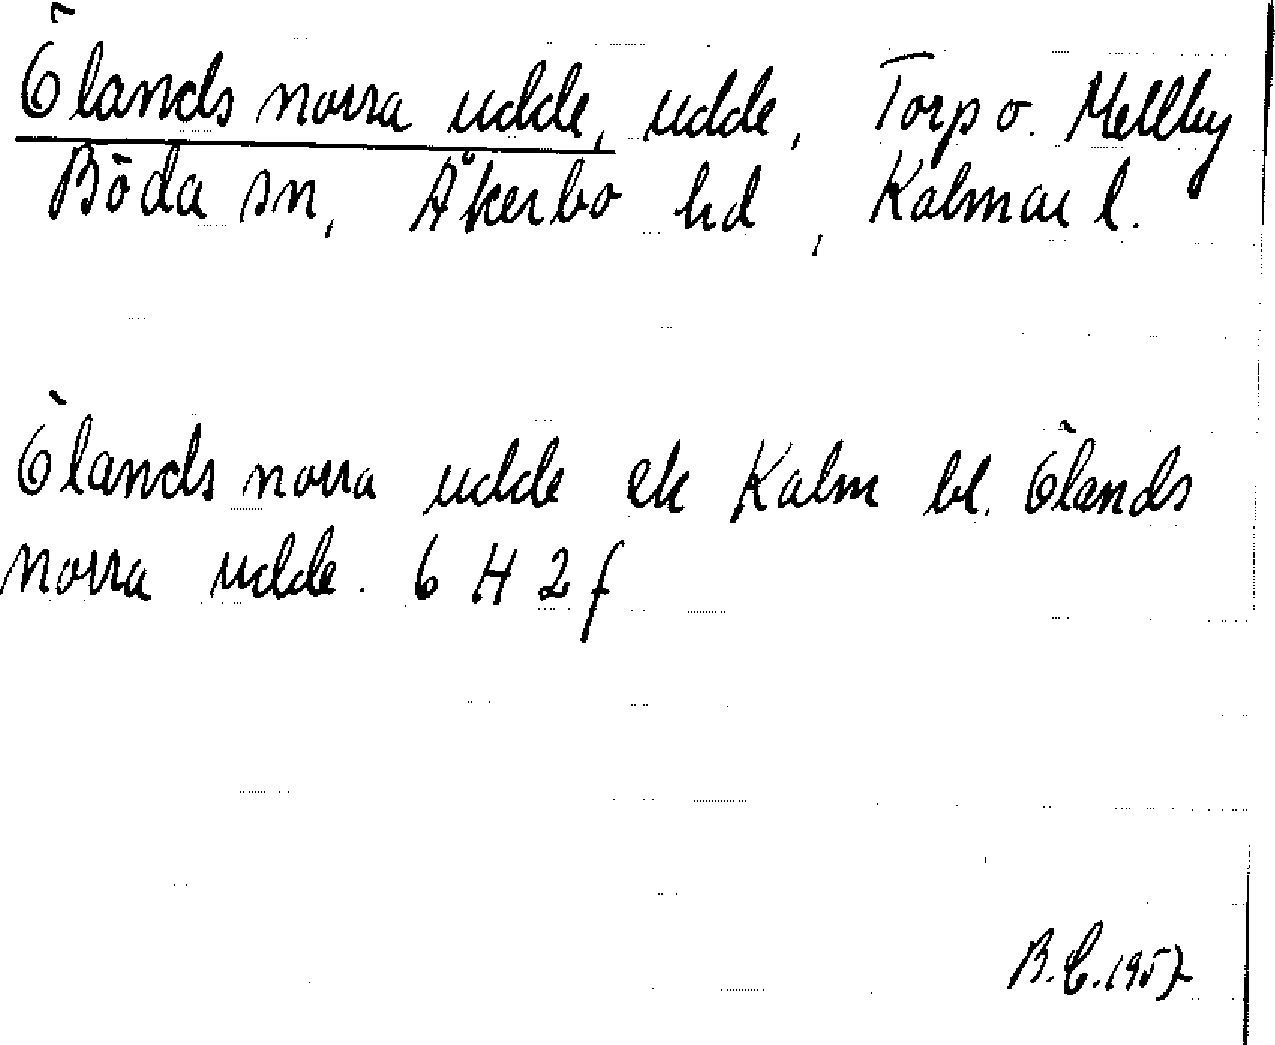 Ölands norra udde, udde, Torp o. Mellby
Böda sn, Åkerbo hd, Kalmar l.
Ölands norra udde ek Kalm bl. Ölands
norra udde. 6 H 2 f
B.C. 1957